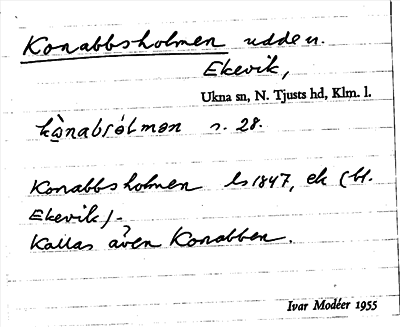 Konabbsholmen udde n.
Ekevik,
Ukna sn, N. Tjusts hd, Klm. l.
s. 28.
Konabbsholmen ls 1847, ek (bl.
Ekevik).
Kallas även Konabben.
Ivar Modéer 1955